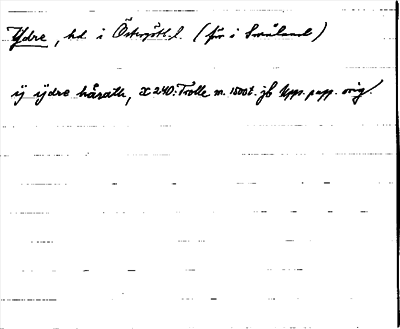 Ydre, hd i Östergötl. l. (förr i Småland)
ÿ ÿdre hårath, X 240: Trolle m. 1500t. jb Upps. papp. orig.